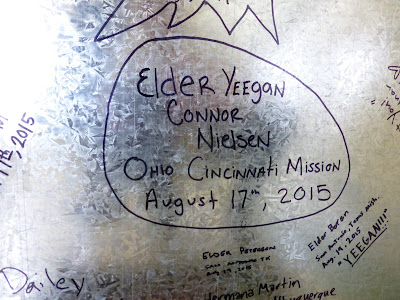 Elder Yeegan
Connor
Nielsen
Ohio Cincinnati Mission
August 17th, 2015
17th, 2015
Elder Peterson
San Antonio TX
Aug 19, 2015
Elder Baron
San Antonio, Texas Mish.
Aug. 19, 2015
"YEEGAN!!!"
Dailey
Hermana Martin
Albuquerque